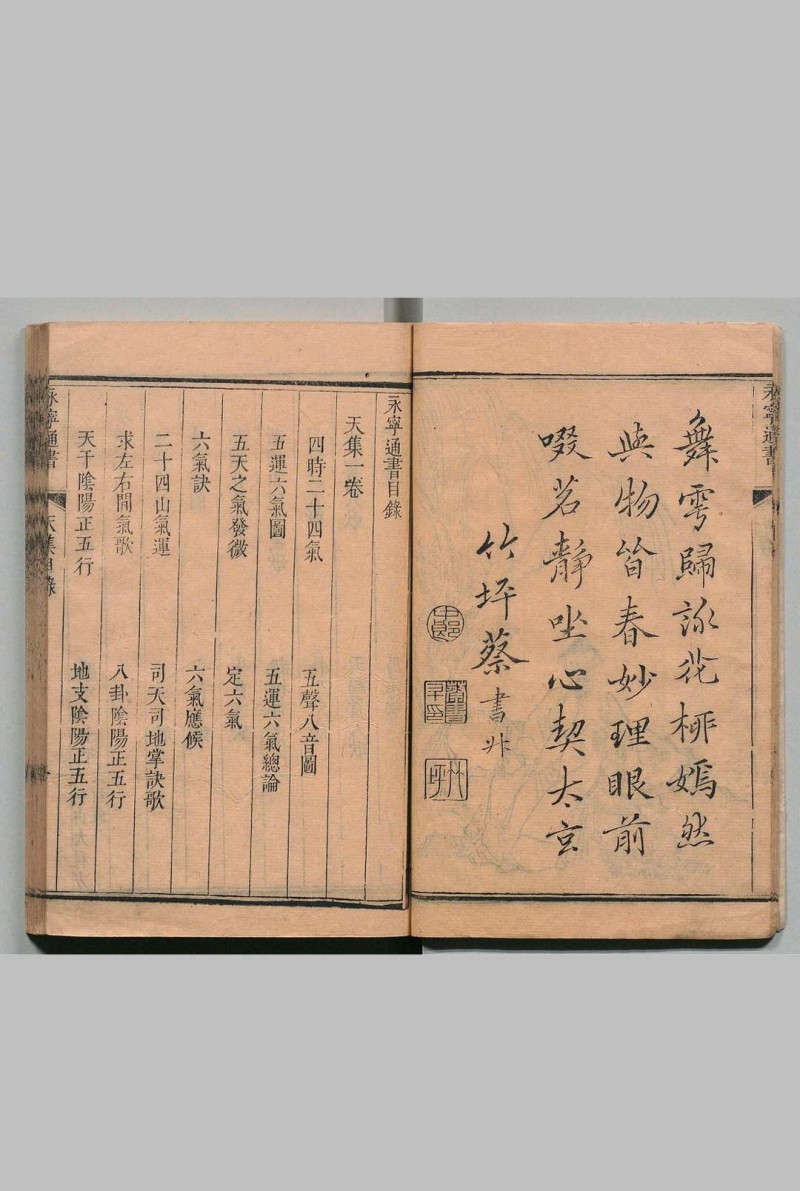 永寧通書
舞雩歸詠花柳嫣然
與物皆春妙理眼前
啜茗靜坐心契太玄
竹坪蔡書升
中郎
竹坪
永寧通書目錄
天集一卷
四時二十四氣 五聲八音圖
五運六氣圖 五運六氣總論
五天之氣發微 定六氣
六氣訣 六氣應候
二十四山氣運 司天司地掌訣歌
求左右間氣歌 八卦陰陽正五行
天干陰陽正五行 地支陰陽正五行
永寧通書 天集目錄